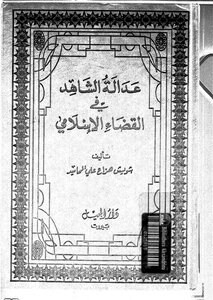 عدالة الشاهد
في
القضاء الإسلامي
تأليف
شويش هزاع علي المحاميد
دار الجيل
بيروت